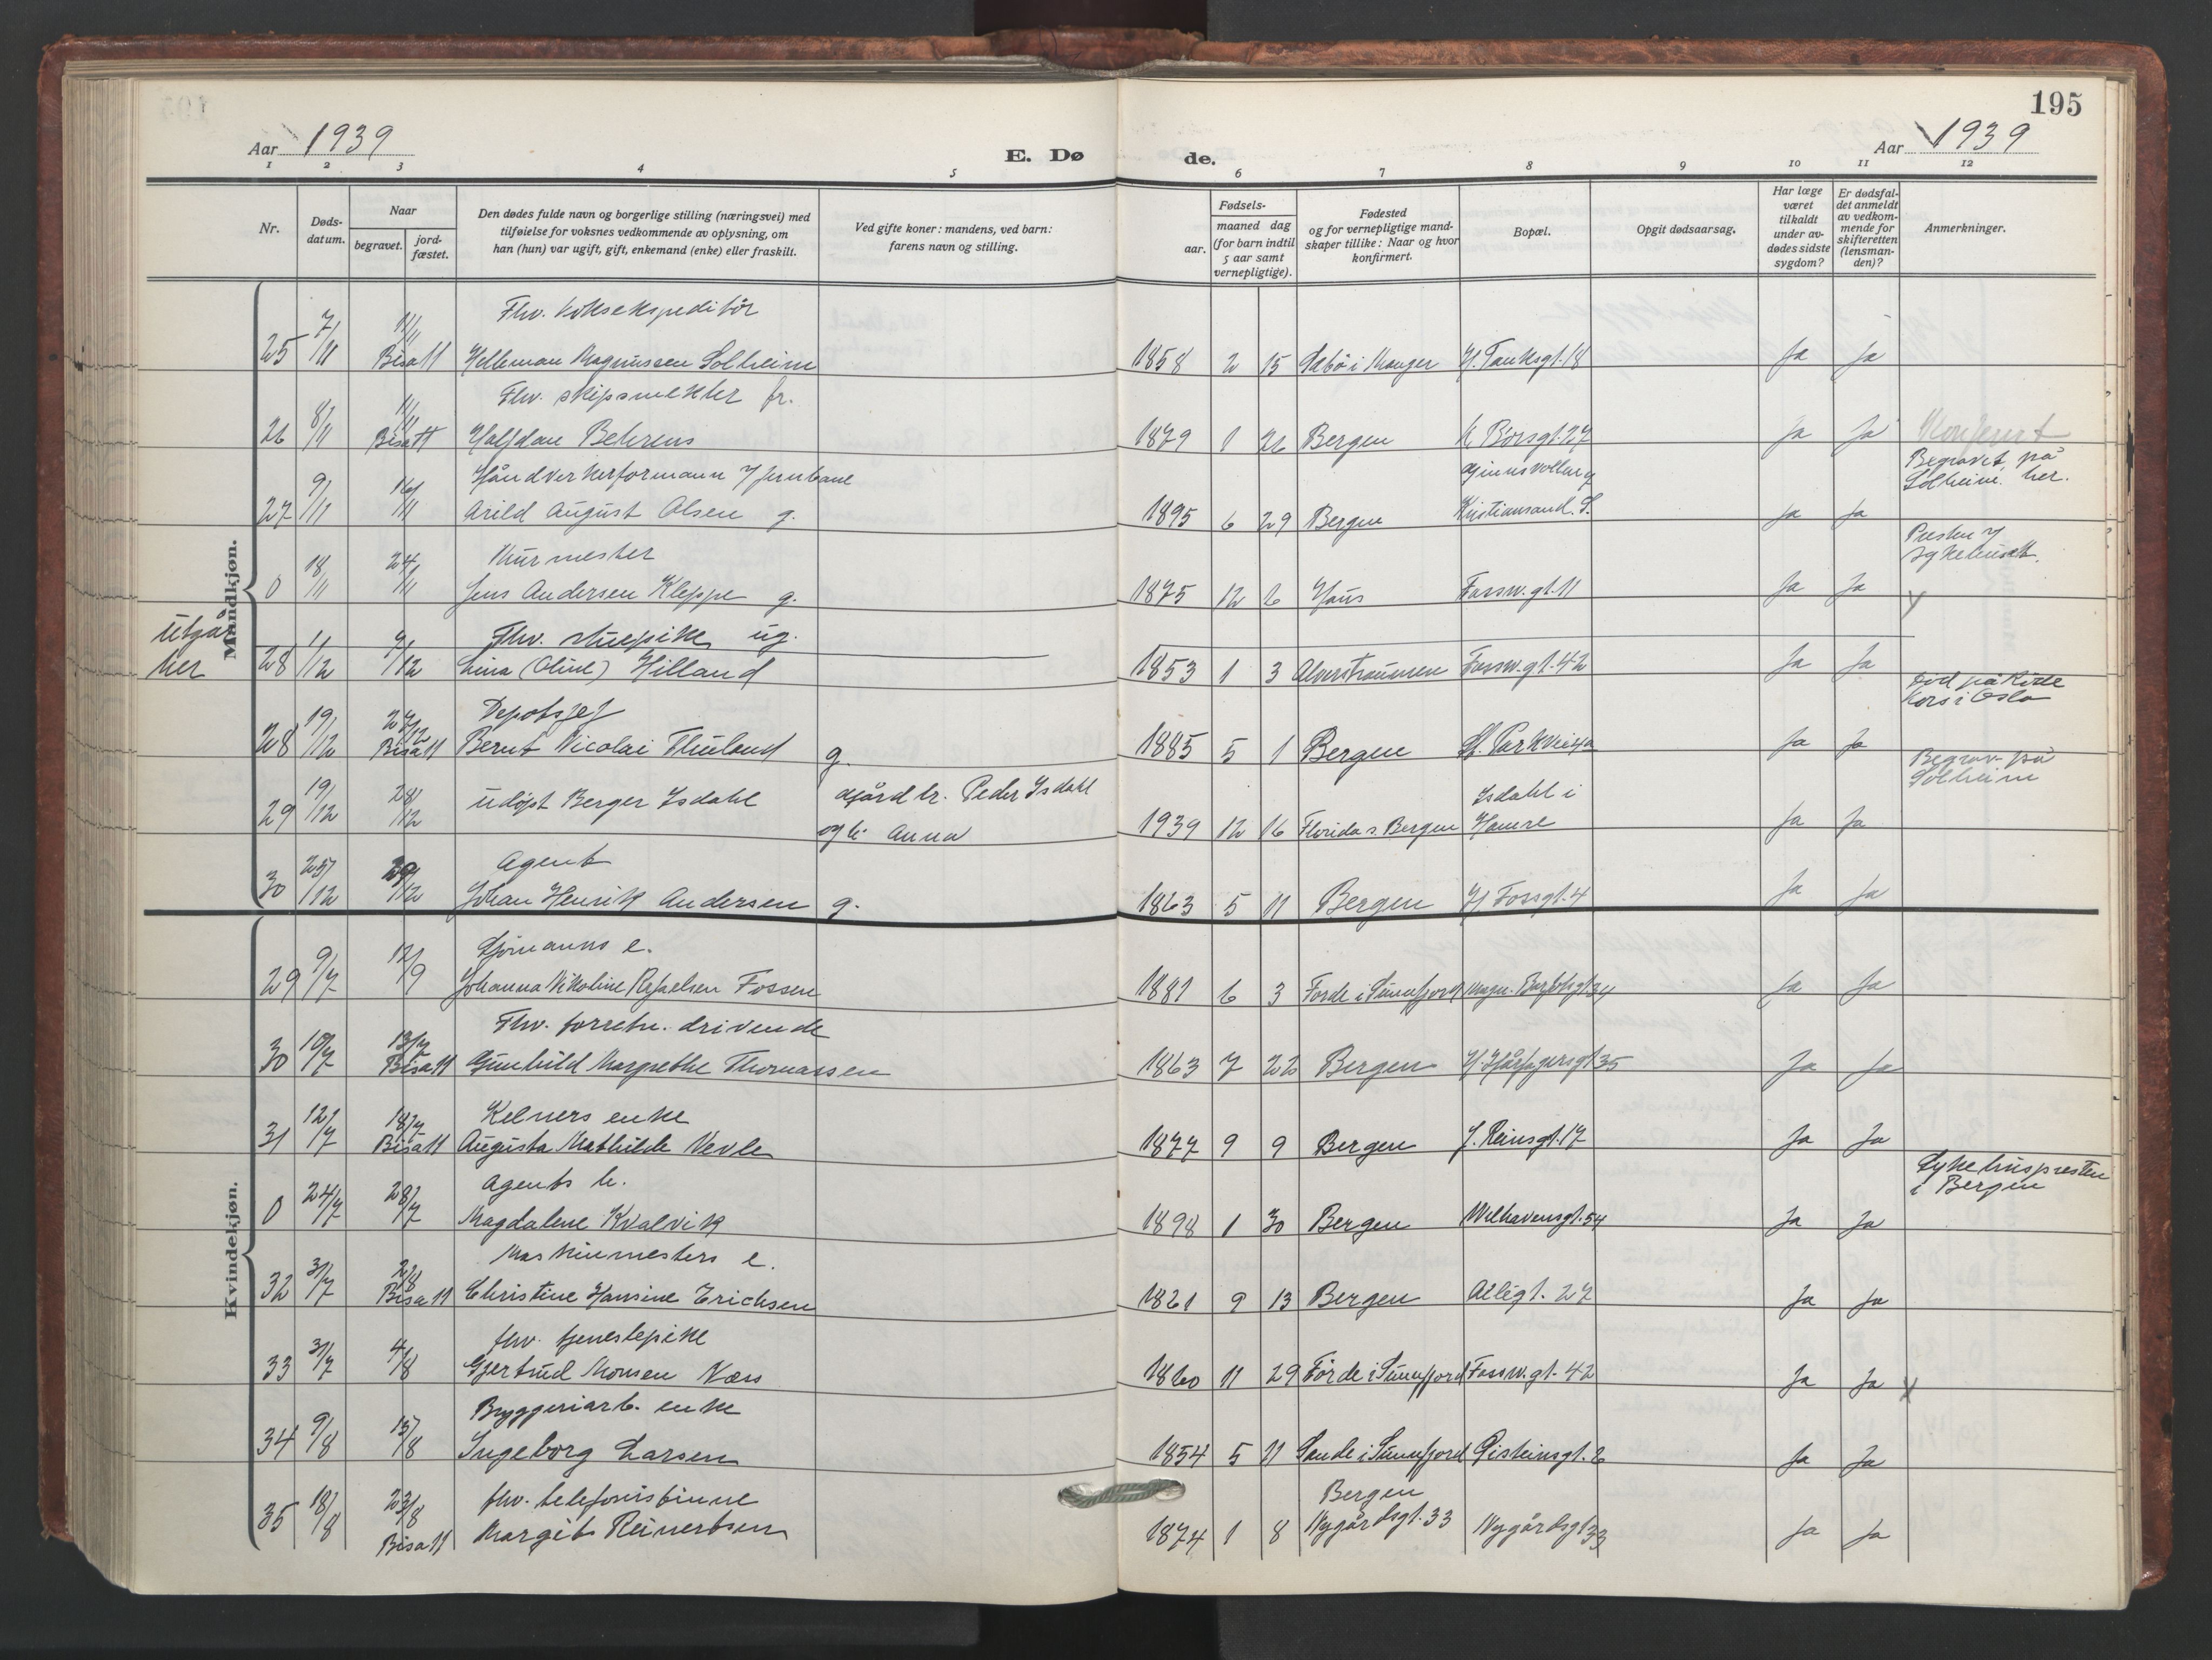 195
Aar 1939
E. Døde.
Aar 1939
1 2 3 4 5 6 7 8 9 10 11 12
Nr.
Døds-datum.
Naar
begravet. jord-fæstet.
Den dødes fulde navn og borgerlige stilling (næringsvei) med
tilføielse for voksnes vedkommende av oplysning, om
han (hun) var ugift, gift, enkemand (enke) eller fraskilt.
Ved gifte koner: mandens, ved barn:
farens navn og stilling.
Fødsels-
aar. maaned dag
(for barn indtil
5 aar samt
vernepligtige).
Fødested
og for vernepligtige mand-
skaper tillike: Naar og hvor
konfirmert.
Bopæl.
Opgit dødsaarsag.
Har læge
været
tilkaldt
under av-
dødes sidste
sygdom?
Er dødsfal-
det anmeldt
av vedkom-
mende for
skifteretten
(lensman-
den)?
Anmerkninger.
Mandkjøn.
Fhv. koksekspeditør
25 7/11 11/11 Bisatt Helleman Magnussen Solheim 1858 2 15 Sæbø i Manger H. Tanksgt. 18 Ja Ja
Fhv. skipsmekler fr.
26 8/11 11/11 Bisatt Halfdan Behrens 1879 1 26 Bergen K. Børsgt. 27 Ja Ja
Håndverkerformann v jernbane Begravet på
Solheim her.
27 9/11 16/11 Arild August Olsen g. 1895 6 29 Bergen Kristiansand. S. Ja Ja
Murmester Presten v
sykehuset.
0 18/11 24/11 Jens Andersen Kleppe g. 1875 12 6 Haus Fossw. gt. 11 Ja Ja
Utgår
her
Fhv. stuepike ug.
28 1/12 9/12 Lina (Oline) Hilland 1853 1 3 Alverstraumen Fossw. gt. 42 Ja Ja
Depotsjef Død på Røde
Kors i Oslo
28 19/12 27/12 Bisatt Bernt Nicolai Thuland g. 1885 5 1 Bergen St. Parkvei 4a Ja Ja
Begrav. på
Solheim
29 19/12 28/12 udøpt Berger Isdahl Gårdbr. Peder Isdahl
og h. Anna 1939 12 16 Florida s. Bergen Isdahl i
Hamre Ja Ja
Agent
30 25/12 29/12 Johan Henrik Andersen g. 1863 5 11 Bergen H Fossgt. 4 Ja Ja
Kvindekjøn.
Sjømanns e.
29 9/7 12/9 Johanna Nikoline Rafaelsen Fossen 1881 6 3 Førde i Sunnfjord Magn. Barfotsgt. 34 Ja Ja
Fhv. forretn. drivende
30 10/7 13/7 Bisatt Gunhild Margrethe Thomassen 1863 7 22 Bergen H. Hårfagersgt. 35 Ja Ja
Kelners enke
31 12/7 18/7 Bisatt Augusta Mathilde Vevle 1877 9 9 Bergen J. Reinsgt. 17 Ja Ja
Agents h. Sykehuspresten
i Bergen
0 24/7 28/7 Magdalene Kvalvik 1898 1 30 Bergen Welhavensgt. 54 Ja Ja
Maskinmesters e.
32 31/7 2/8 Bisatt Christine Hansine Erichsen 1861 9 13 Bergen Allégt. 27 Ja Ja
fhv. tjenestepike
33 31/7 4/8 Gjertrud Monsen Næss 1860 11 29 Førde i Sunnfjord Fossw. gt. 42 Ja Ja
Bryggeriarb. enke
34 9/8 15/8 Ingeborg Larsen 1854 5 11 Sande i Sunnfjord Ja Ja
fhv. telefonistinne
35 18/8 23/8 Bisatt Margit Reinertsen 1874 1 8 Bergen
Nygårdsgt. 33 Nygårdsgt 33 Ja Ja